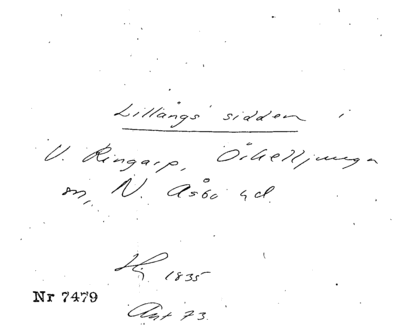 Lillångs sidden i
V. Ringarp, Örkelljunga
sn, N. Åsbo hd.
1835
Nr 7479
Ant 73